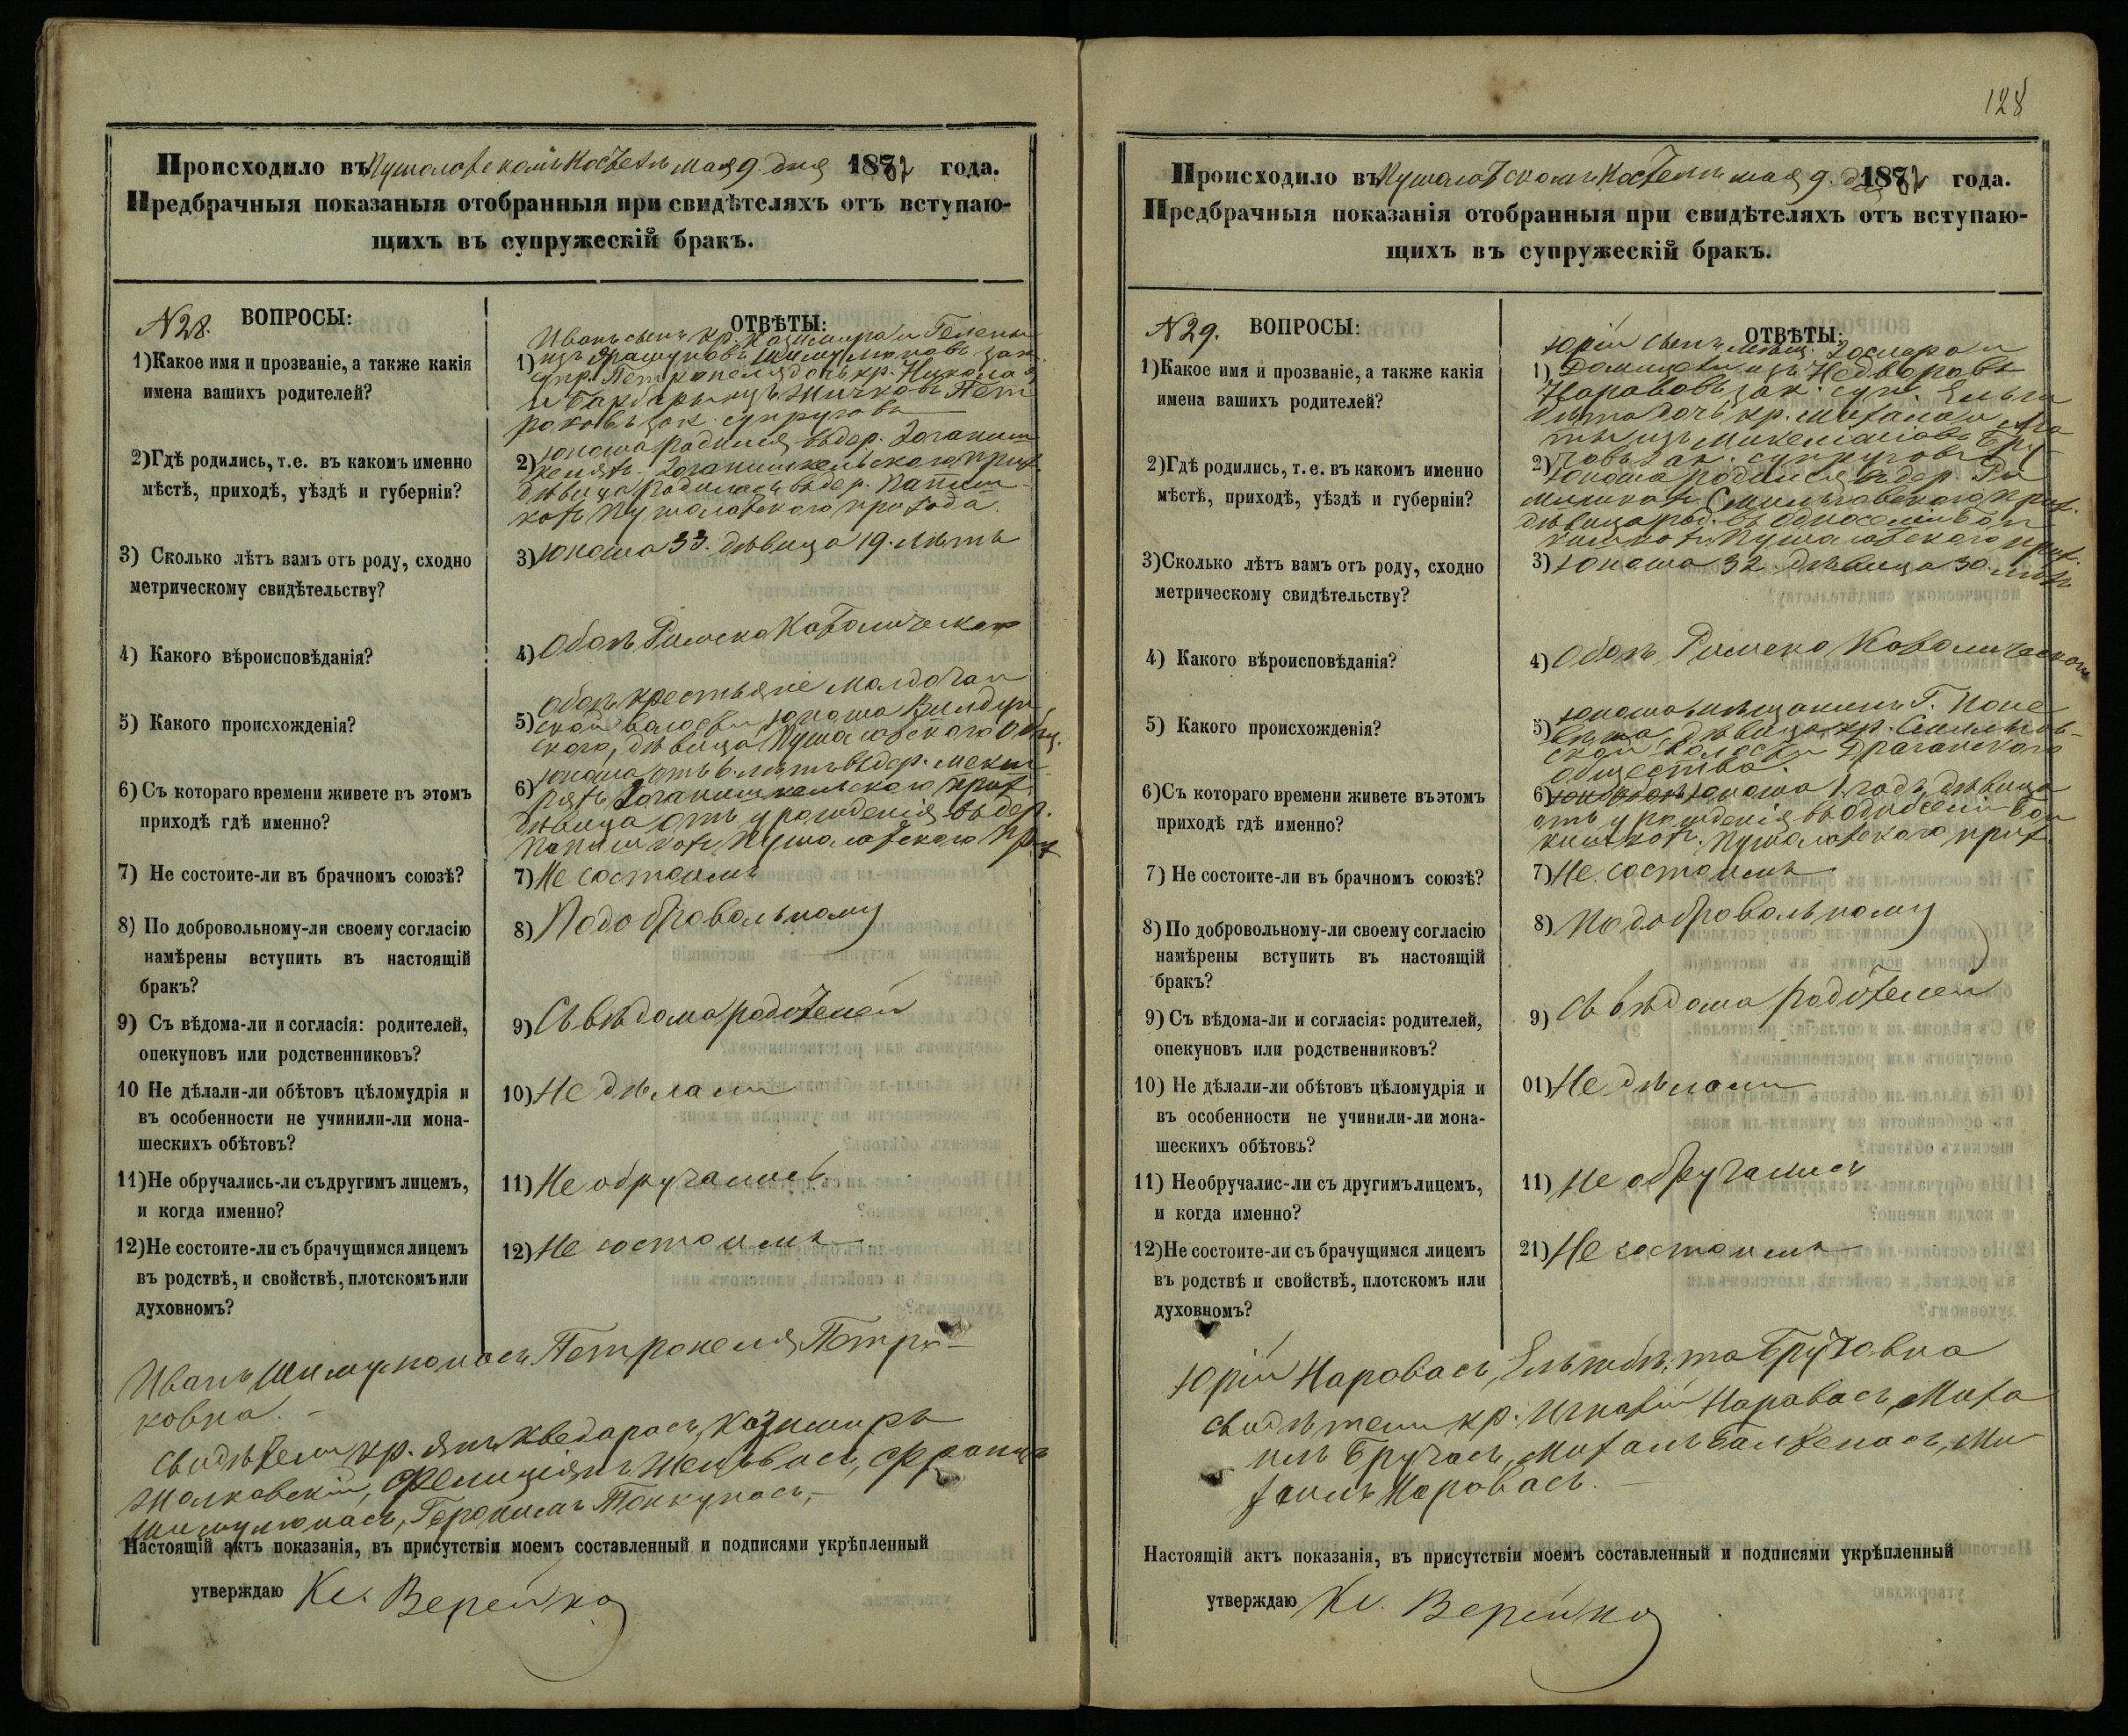 Происходило въ Пушолотскомъ Костелѣ мая 9. дня 1882 года.
Предбрачныя показаныя отобранныя при свидѣтеляхъ отъ вступаю-
щихъ въ супружескій бракъ.
N 28. ВОПРОСЫ:
1) Какое имя и прозваніе, а также какія
имена вашихъ родителей?
2) Гдѣ родились, т.е. въ какомъ именно
мѣстѣ, приходѣ, уѣздѣ и губерніи?
3) Сколько лѣтъ вамъ отъ роду, сходно
метрическому свидѣтельству?
4) Какого вѣроисповѣданія?
5) Какого происхожденія?
6) Съ котораго времени живете въ этомъ
приходѣ гдѣ именно?
7) Не состоите-ли въ брачномъ союзѣ?
8) По добровольному-ли своему согласію
намѣрены вступить въ настоящій
бракъ?
9) Съ вѣдома-ли и согласія: родителей,
опекуновъ или родственниковъ?
10 Не дѣлали-ли обѣтовъ цѣломудрія и
въ особенности не учинили-ли мона-
шескихъ обѣтовъ?
11) Не обручались-ли съ другимъ лицемъ,
и когда именно?
12) Не состоите-ли съ брачущимся лицемъ
въ родствѣ, и свойствѣ, плотскомъ или
духовномъ?
ОТВѢТЫ:
Иванъ сынъ кр. Казимира и Гелены
1) изъ зак.
супр. Петронеля дочь кр. Николая
и Барбары изъ Пет
роковъ зак. супруговъ
2) юноша родился въ дер.
прих.
дѣвица родилась въ дер. Папиш-
кахъ Пушолотского прихода.
3) юноша 33. дѣвица 19. лѣтъ
4) Обоъ Римско Католическаго
5) Обоъ крестьяніе
волости юноша
ского, дѣвица Пушолотского общ.
6) юноша отъ 6. лѣтъ въ дер.
прих.
дѣвица отъ урожденія въ дер.
Папишкахъ Пушолотского прих
7) Не состоимъ
8) По добровольному
9) Съ вѣдома родителей
10) Не дѣлали
11) Не обручались
12) Не состоимъ
Иванъ Петронеля Петро-
ковна.
Свидѣтели кр. Янъ Кведарасъ, Казимиръ
Фелиціянъ Францъ
Геронимъ
Настоящій актъ показанія, въ присутствіи моемъ составленный и подписями укрѣпленный
утверждаю Кс. Верейко
128
Происходило въ Пушолотскомъ Костелѣ мая 9. дня 1882 года.
Предбрачныя показанія отобранныя при свидѣтеляхъ отъ вступаю-
щихъ въ супружескій бракъ.
N 29. ВОПРОСЫ:
1) Какое имя и прозваніе, а также какія
имена вашихъ родителей?
2) Гдѣ родились, т.е. въ какомъ именно
мѣстѣ, приходѣ, уѣздѣ и губерніи?
3) Сколько лѣтъ вамъ отъ роду, сходно
метрическому свидѣтельству?
4) Какого вѣроисповѣданія?
5) Какого происхожденія?
6) Съ котораго времени живете въ этомъ
приходѣ гдѣ именно?
7) Не состоите-ли въ брачномъ союзѣ?
8) По добровольному-ли своему согласію
намѣрены вступить въ настоящій
бракъ?
9) Съ вѣдома-ли и согласія: родителей,
опекуновъ или родственниковъ?
10) Не дѣлали-ли обѣтовъ цѣломудрія и
въ особенности не учинили-ли мона-
шескихъ обѣтовъ?
11) Не обручалис-ли съ другимъ лицемъ,
и когда именно?
12) Не состоите-ли съ брачущимся лицемъ
въ родствѣ и свойствѣ, плотскомъ или
духовномъ?
ОТВѢТЫ:
Юрій сынъ мѣщ. и
1) изъ
Наровавъ зак. суп.
дочь кр. Михала и
изъ Бру
2) зак. супруговъ
юноша родился въ дер.
прих.
дѣвица род. въ
Пушолотского прих.
3) юноша 32. дѣвица 30. лѣтъ
4) Обоъ Римско Католическаго
5) юноша мѣщанинъ Г. Поне
вѣжа, дѣвица кр.
ской волости Драганского
общества.
6) юноша 1 годъ дѣвица
отъ урожденія въ
Пушолотского прих.
7) Не состоимъ
8) По добровольному
9) Съ вѣдома родителей
01) Не дѣлали
11) Не обручались
21) Не состоимъ
Юрій Наровасъ,
свидѣтели кр. Игнатій Наровасъ, Миха
илъ Бручасъ, Михалъ Ми
халъ Наровасъ.
Настоящій актъ показанія, въ присутствіи моемъ составленный и подписями укрѣпленный
утверждаю Кс. Верейко